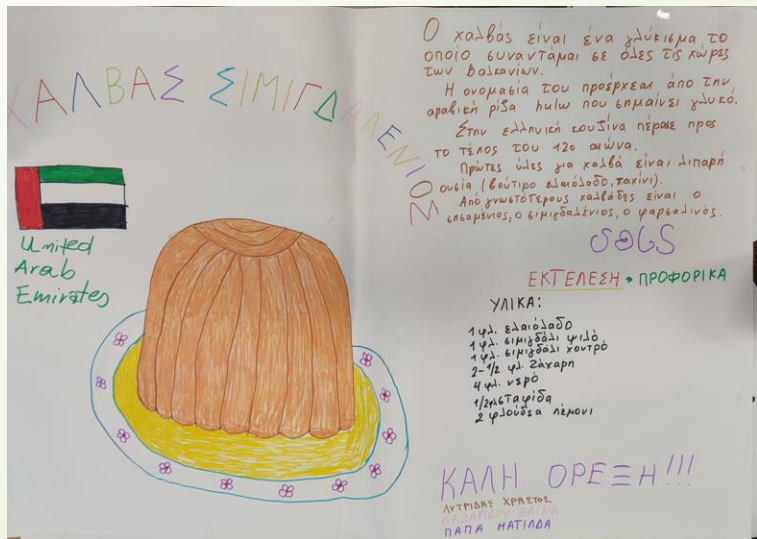 ΧΑΛΒΑΣ ΣΙΜΙΓΔΑΛΕΝΙΟΣ
United
Arab
Emirates
Ο χαλβάς είναι ένα γλύκισμα το
οποίο συναντάμαι σε όλες τις χώρες
των Βαλκανίων.
Η ονομασία του προέρχεαι άπο την
αραβική ρίζα hulw που σημαίνει γλυκό.
Στην ελληνική κουζίνα πέρασε προς
το τέλος του 12ο αιώνα.
Πρώτες ύλες για χαλβά είναι λιπαρή
ουσία (βούτιρο ελαιόλαδο, ταχίνι).
Από γνωστότερους χαλβάδες είναι ο
σησαμένιος, ο σιμιγδαλένιος, ο φαρσαλινός.
ΕΚΤΕΛΕΣΗ → ΠΡΟΦΟΡΙΚΑ
ΥΛΙΚΑ:
1 φλ. ελαιόλαδο
1 φλ. σιμιγδάλι ψιλό
1 φλ. σιμιγδάλι χοντρό
2-1/2 φλ. ζάχαρη
4 φλ. νερό
1/2 φλ σταφίδα
2 φλούδεα λεμονι
ΚΑΛΗ ΟΡΕΞΗ!!!
ΛΥΤΡΙΔΗΣ ΧΡΗΣΤΟΣ
ΛΑΖΑΡΙΔΟΥ ΕΛΙΝΑ
ΠΑΠΑ ΜΑΤΙΛΔΑ